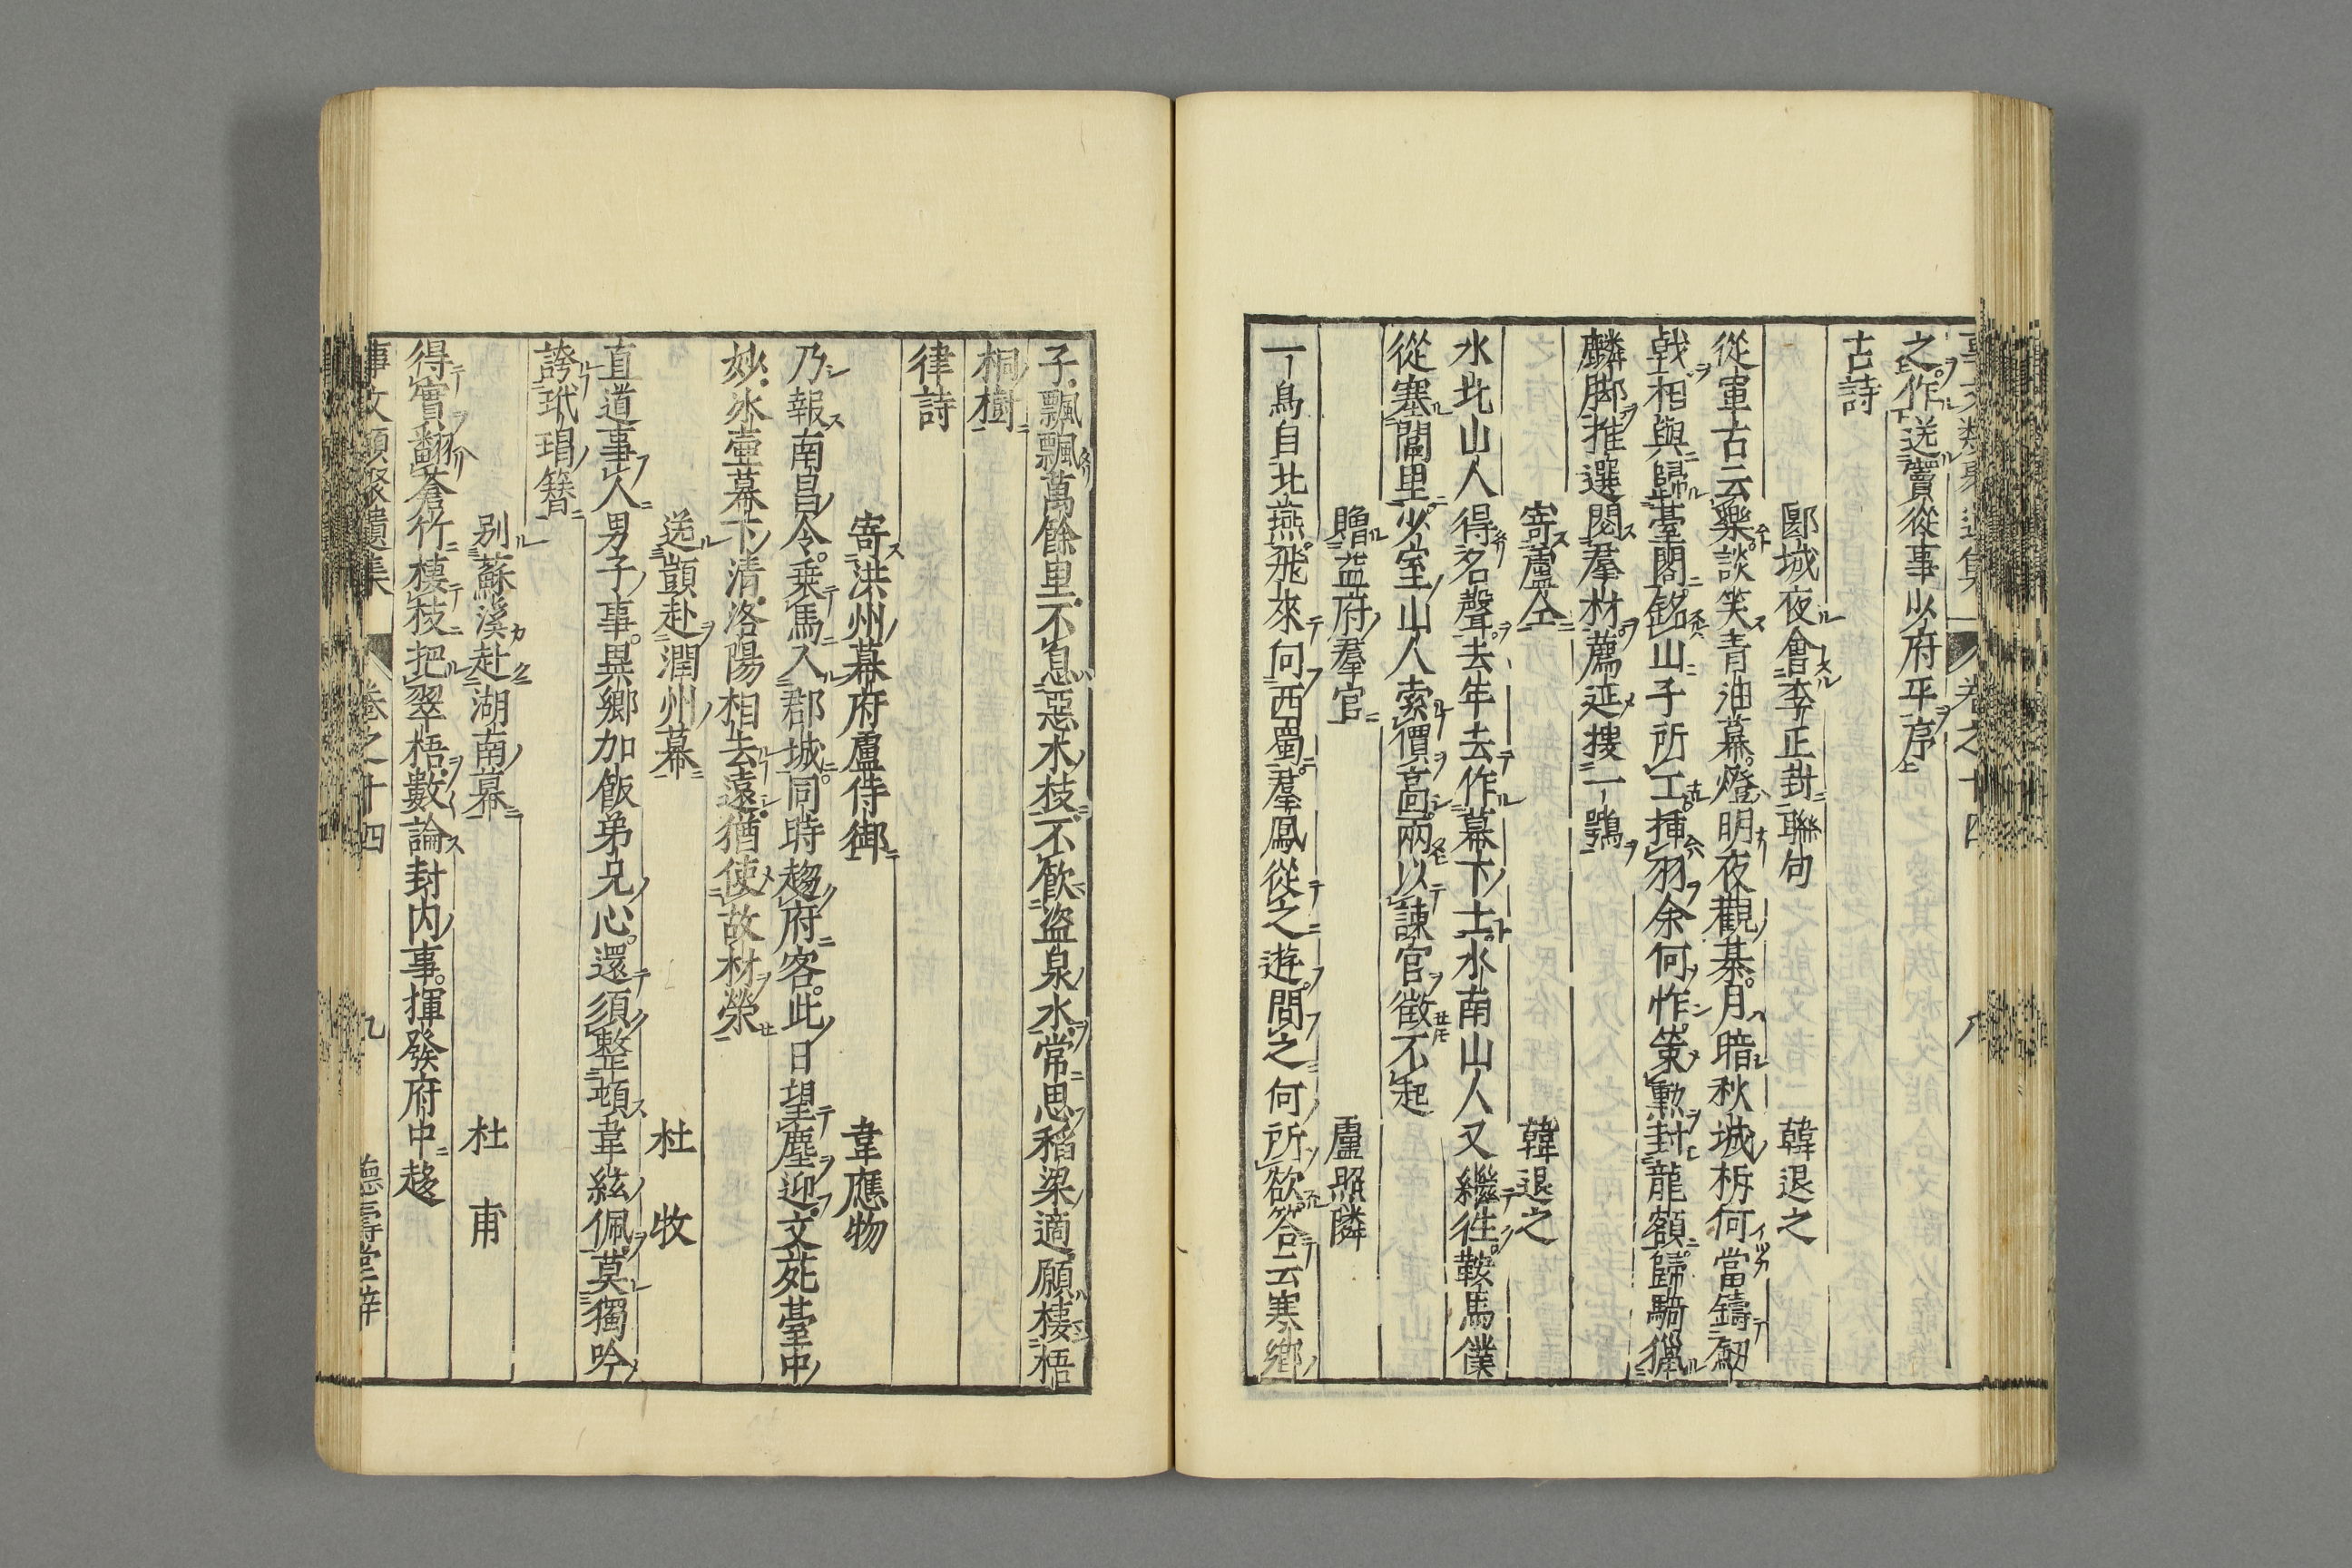 之作送竇從事少府平序
古詩
郾城夜會李正封聯句　韓退之
從軍古云樂談笑青油幕燈明夜觀棊月暗秋城柝何當鑄劒
戟相與歸臺閣銘山子所工揷羽余何怍策勲封龍額歸騎獵
麟脚推選閱羣材薦延搜一鶚
寄盧仝　韓退之
水北山人得名聲去年去作幕下士水南山人又繼徃鞍馬僕
從塞閭里少室山人索價高兩以諫官徵不起
贈益府羣官　盧照隣
一鳥自北燕飛來何西蜀羣鳳從之遊問之何所欲答云寒鄉
子飄飄萬餘里不息惡水枝不飲盜泉水常思稻梁適願棲梧
桐樹
律詩
寄洪州幕府盧侍御　韋應物
乃報南昌令乗馬入郡城同時趨府客此日望塵迎文苑臺中
妙氷壷幕下清洛陽相去遠猶使故材榮
送顗赴潤州幕　杜牧
直道事人男子事異鄉加飯弟兄心還須整頓韋絃佩莫獨吟
誇玳瑁簪
別蘇溪赴湖南幕　杜甫
得實翻蒼竹棲枝把翠梧數論封内事揮發府中趨
事文類聚遺集　卷之十四　九　德壽堂梓